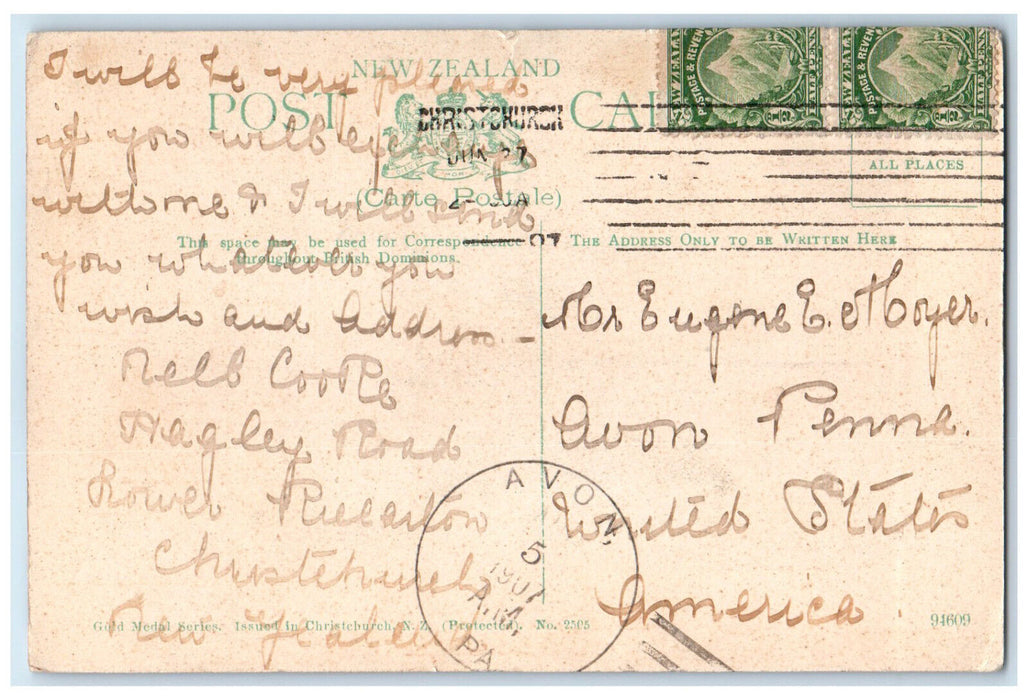 NEW ZEALAND
POST CA
CHRISTCHURCH
JUN 27
2- 30A
07
(Carte Postale)
This space may be used for Correspondence
throughout British Dominions.
THE ADDRESS ONLY TO BE WRITTEN HERE
NEW ZEALAN
POSTAGE & REVEN
HALF PENN
POSTAGE & REVEN
HALF PENN
ALL PLACES
I will be very pleased
if you will exchange
with me & I will send
you whatever you
wish and address. -
Nell Cooke
Hagley Road
Lower Riccarton
Christchurch
New Zealand
Mr Eugene E. Moyer.
Avon Penna.
United States
America
AVON,
5
1907
A.M.
PA
Gold Medal Series. Issued in Christchurch, N. Z. (Protected). No. 2505
94609